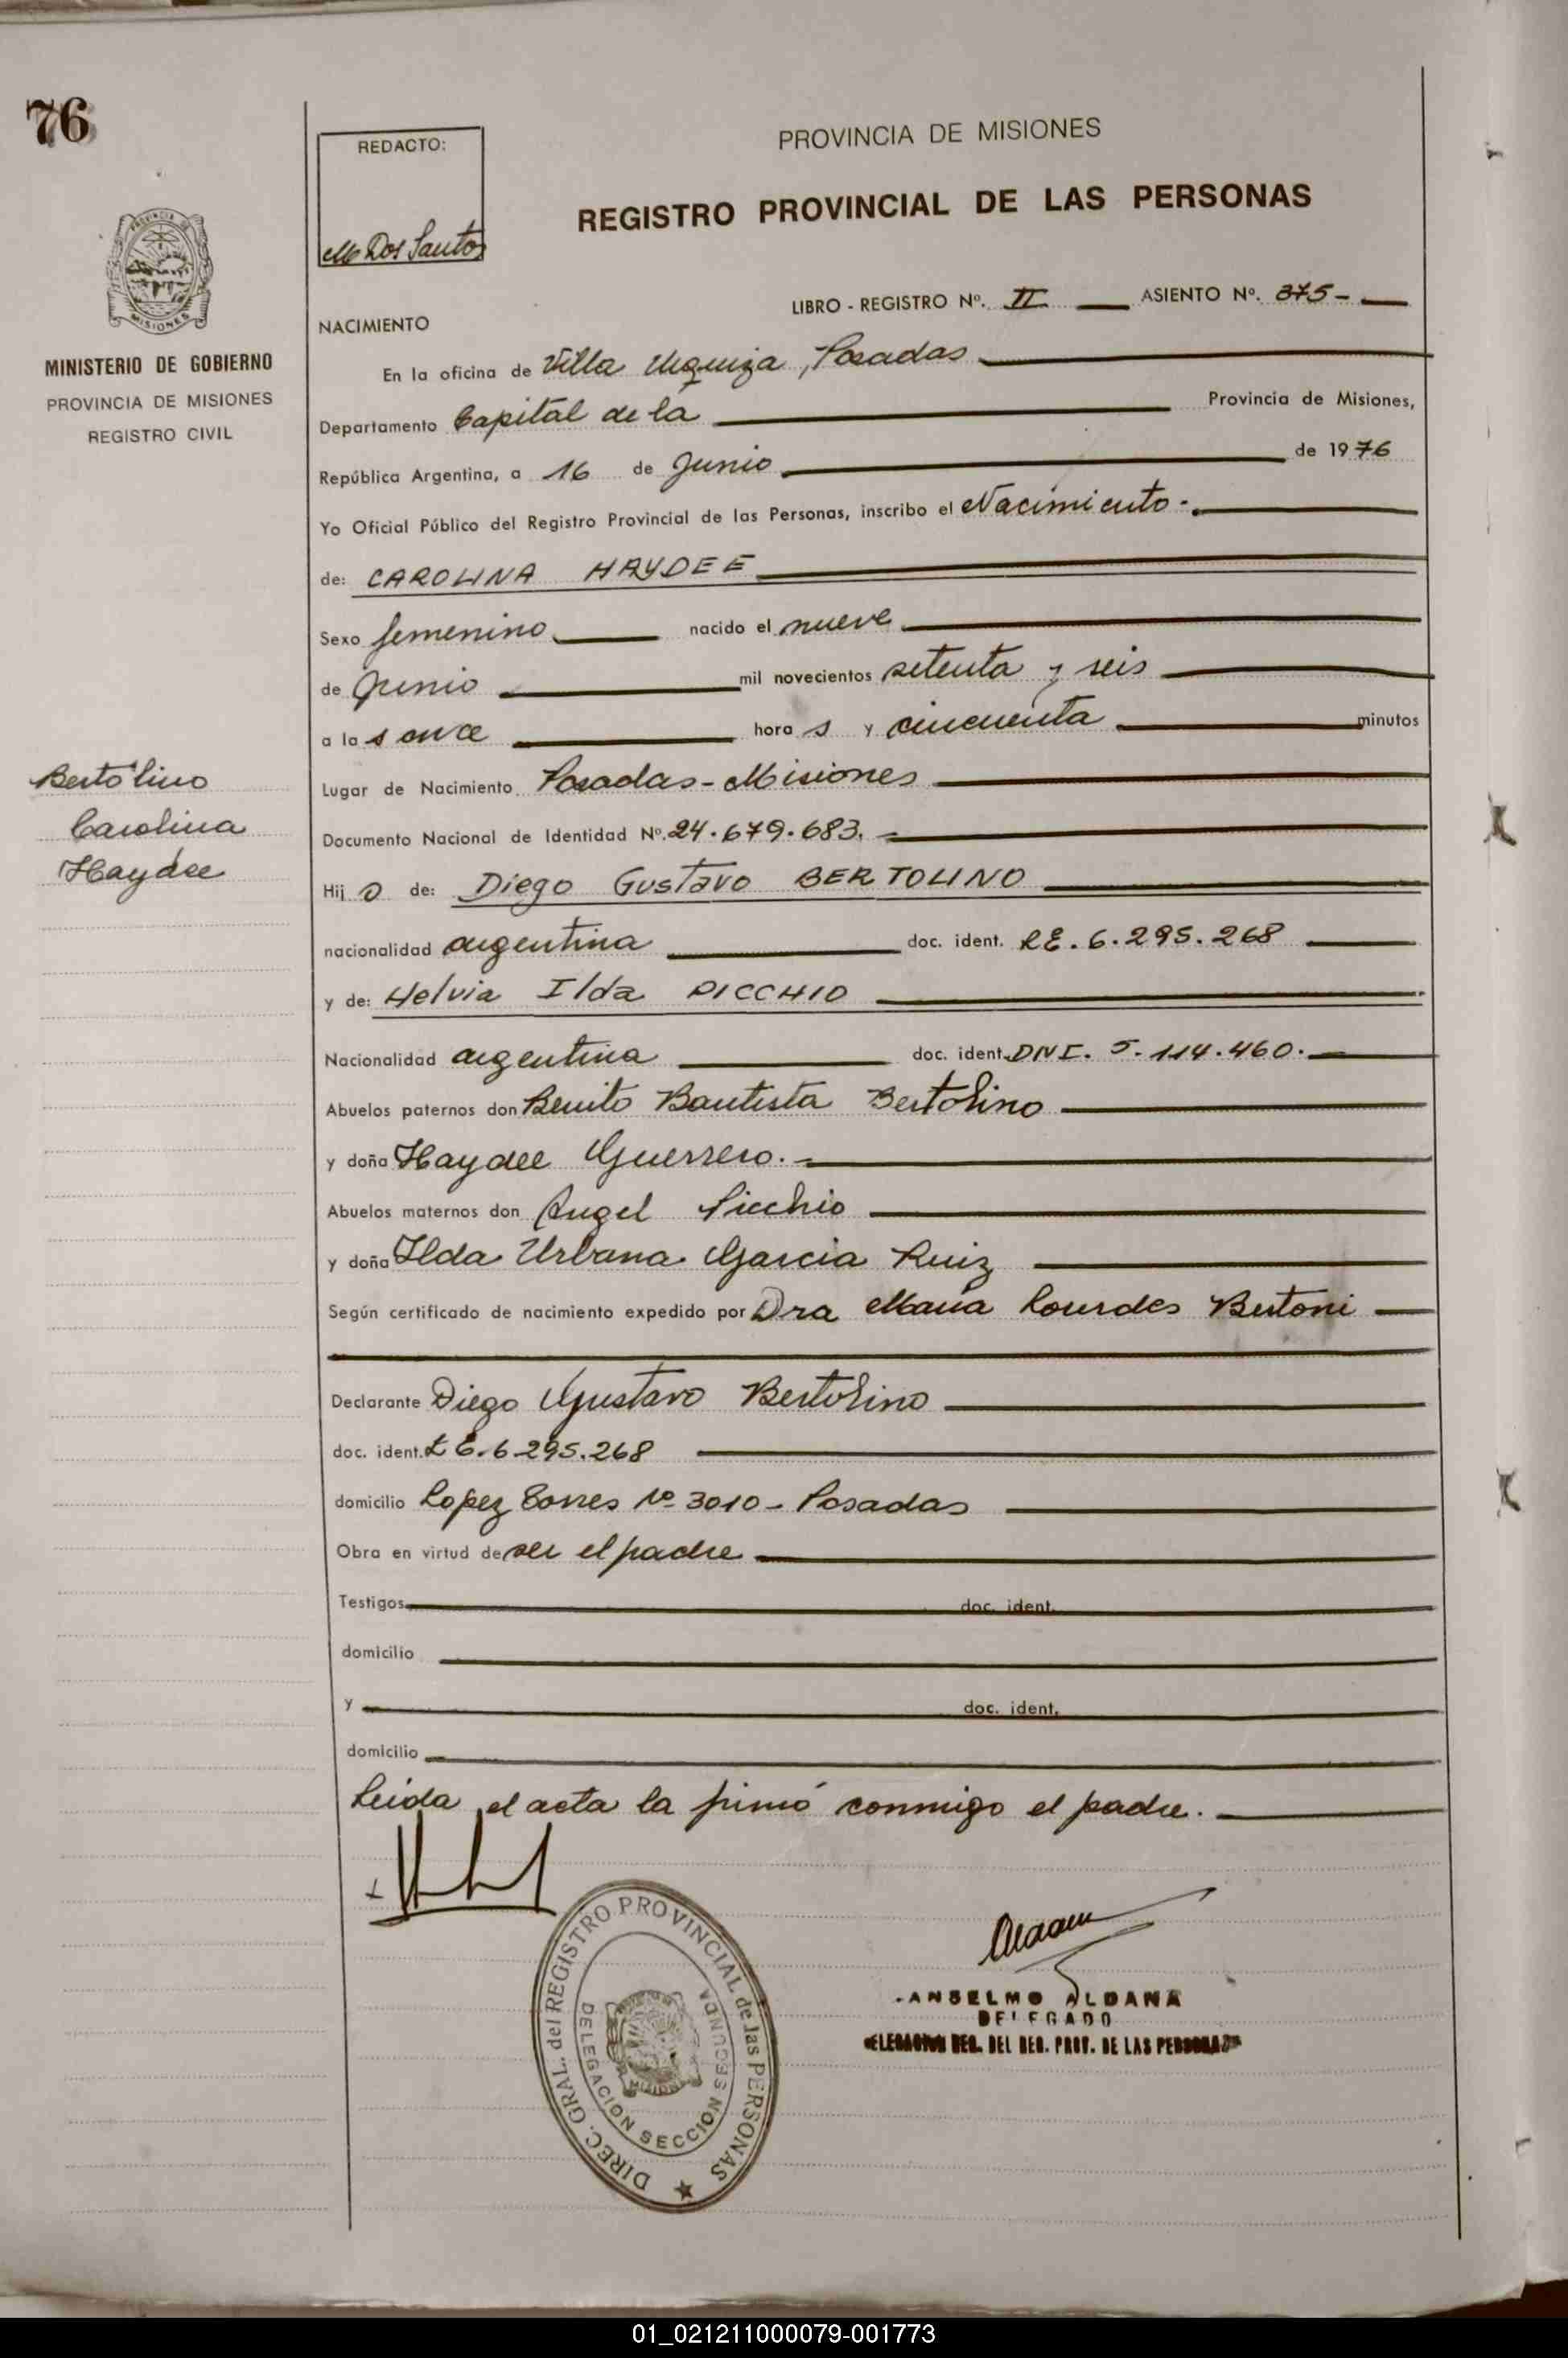 76
REDACTO:
M Dos Santos
PROVINCIA DE MISIONES
REGISTRO PROVINCIAL DE LAS PERSONAS
PROVINCIA DE
MISIONES
MINISTERIO DE GOBIERNO
PROVINCIA DE MISIONES
REGISTRO CIVIL
LIBRO - REGISTRO Nº. II ASIENTO Nº. 375-
NACIMIENTO
En la oficina de Villa Urquiza, Posadas
Departamento Capital de la Provincia de Misiones,
República Argentina, a 16 de Junio de 1976
Yo Oficial Público del Registro Provincial de las Personas, inscribo el Nacimiento-.
de: CAROLINA HAYDEE
Sexo femenino nacido el nueve
de Junio mil novecientos setenta y seis
a las once horas y cincuenta minutos
Lugar de Nacimiento Posadas-Misiones
Documento Nacional de Identidad Nº. 24.679.683.
Bertolino
Carolina
Haydee
Hijo de: Diego Gustavo BERTOLINO
nacionalidad argentina doc. ident. LE. 6.295.268
y de: Helvia Ilda PICCHIO
Nacionalidad argentina doc. ident. DNI. 5.114.460.
Abuelos paternos don Benito Bautista Bertolino
y doña Haydee Guerrero.-
Abuelos maternos don Angel Picchio
y doña Ilda Urbana Garcia Ruiz
Según certificado de nacimiento expedido por Dra Maria Lourdes Bertoni
Declarante Diego Gustavo Bertolino
doc. ident. LE.6.295.268
domicilio Lopez Torres Nº 3010- Posadas
Obra en virtud de ser el padre
Testigos doc. ident.
domicilio
y doc. ident.
domicilio
Leida el acta la firmó conmigo el padre.
DIREC. GRAL. del REGISTRO PROVINCIAL de las PERSONAS
DELEGACION SECCION SEGUNDA
MISIONES
ANSELMO ALDANA
DELEGADO
DELEGACION SEG. DEL REG. PROV. DE LAS PERSONAS
01_021211000079-001773